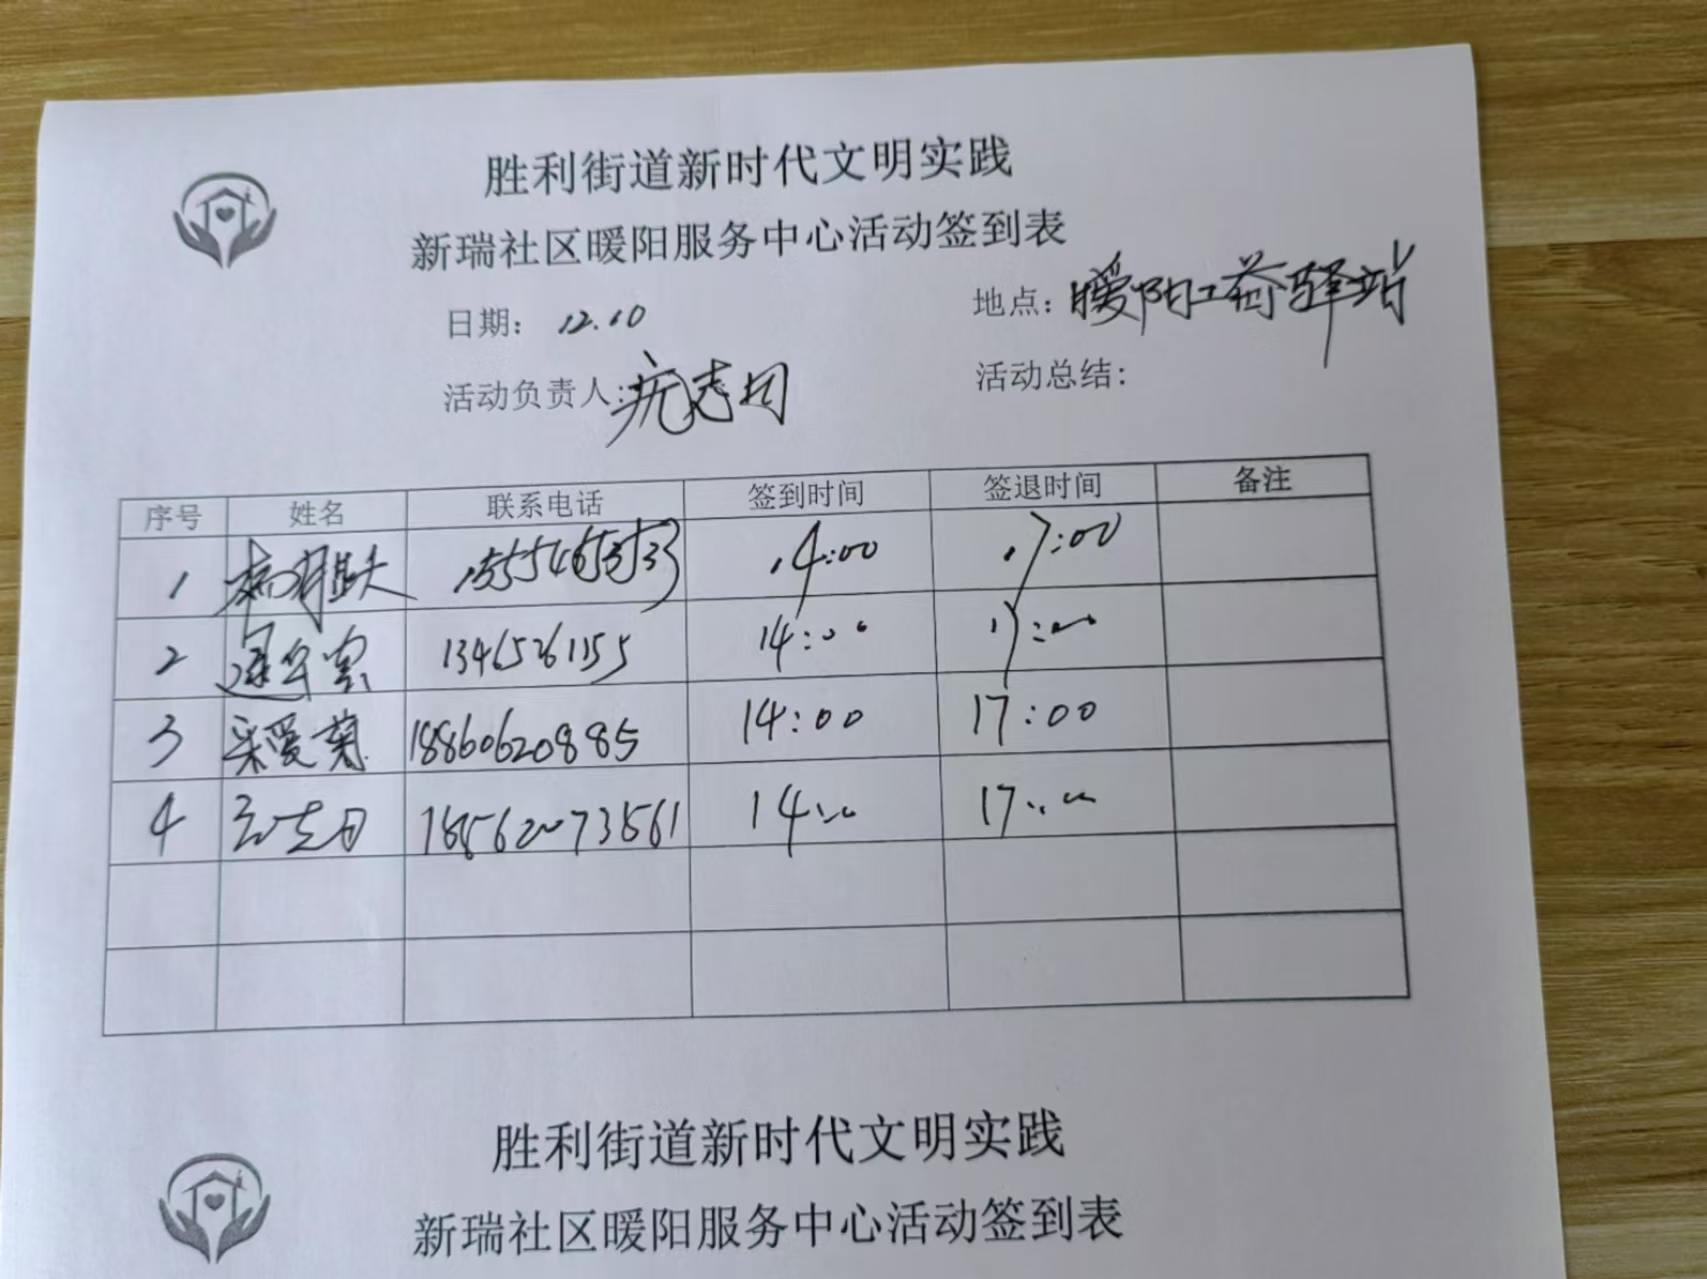 胜利街道新时代文明实践
新瑞社区暖阳服务中心活动签到表
日期： 12.10 地点：暖阳工荷驿站
活动负责人： 活动总结：
序号 姓名 联系电话 签到时间 签退时间 备注
1 14:00 17:00
2 13465261155 14:00 17:00
3 采爱菊 18860620885 14:00 17:00
4 14:00 17:00
胜利街道新时代文明实践
新瑞社区暖阳服务中心活动签到表